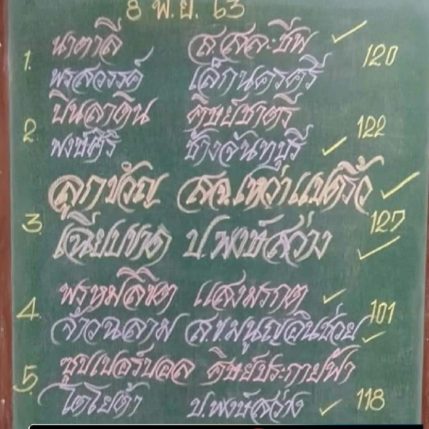 8 พ.ย. 63
1. นาตาลี ส.สละชีพ 120
พรสวรรค์ เล็กนครตรี
2 ปิ่นลาดิน ศิษย์ชาตรี 122
พงษ์ศิริ ช้างจันทบุรี
3 ลูกขวัญ สจ.เหว่าแปดริ้ว 127
ป.พงษ์สว่าง
4 พรหมลิขิต แสงมรกต 101
จ้าวนลาม
5 ซุปเปอร์บอล ศิษย์ประกายฟ้า
โตโยต้า ป.พงษ์สว่าง 118